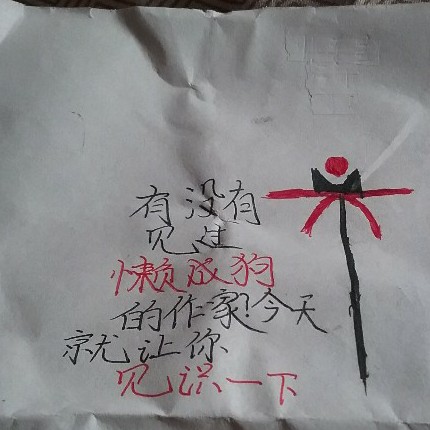 有没有
见过
懒成狗
的作家?今天
就让你
见识一下